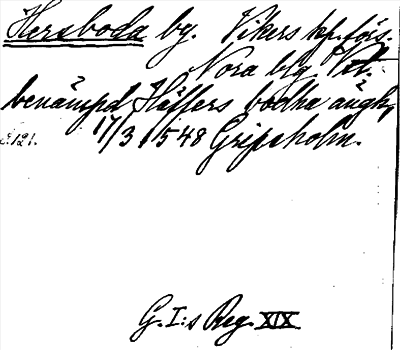 Hersboda by. Vikers kpförs.
Nora blg Vst.
benämpd Häffers bodha ängh,
s. 121. 17/3 1548 Gripsholm.
G. I:s Reg. XIX